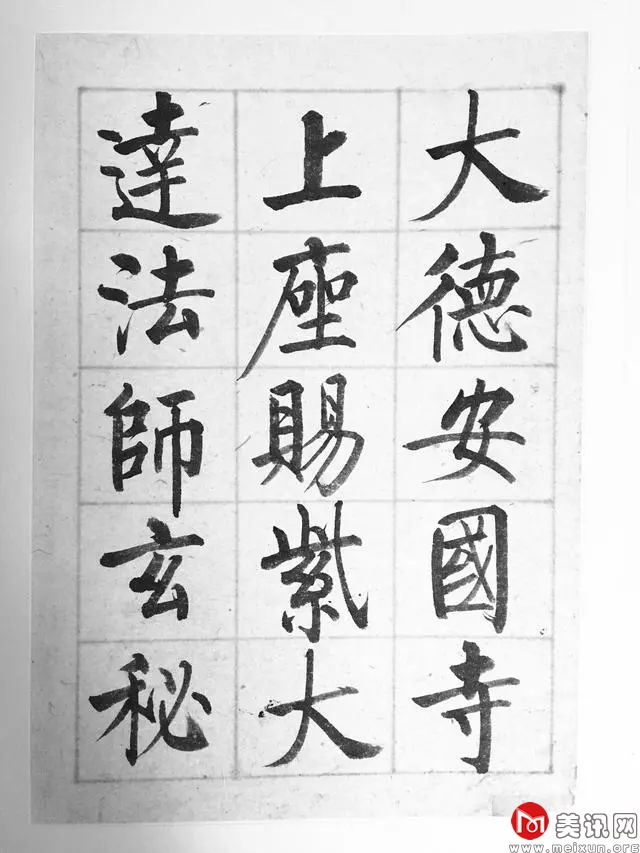 大德安國寺
上座賜紫大
達法師玄秘
美讯网
www.meixun.org